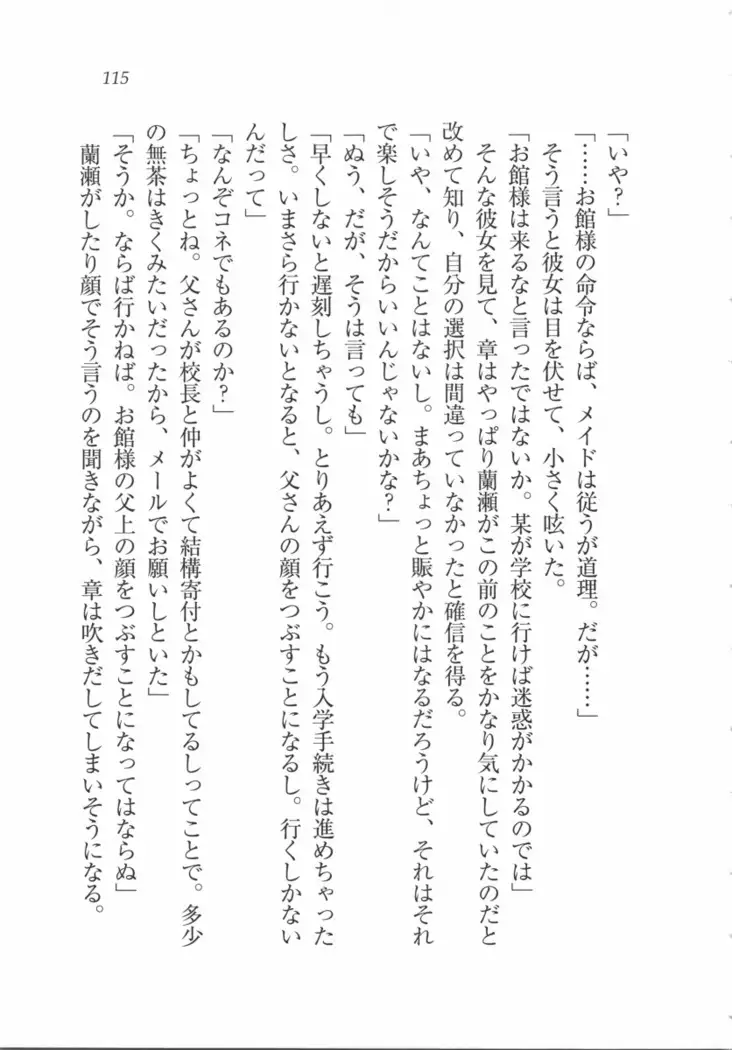 115
「いや？」
「……お館様の命令ならば、メイドは従うが道理。だが……」
そう言うと彼女は目を伏せて、小さく呟いた。
「お館様は来るなと言ったではないか。某が学校に行けば迷惑がかかるのでは」
そんな彼女を見て、章はやっぱり蘭瀬がこの前のことをかなり気にしていたのだと
改めて知り、自分の選択は間違っていなかったと確信を得る。
「いや、なんてことはないし。まあちょっと賑やかにはなるだろうけど、それはそれ
で楽しそうだからいいんじゃないかな？」
「ぬう、だが、そうは言っても」
「早くしないと遅刻しちゃうし。とりあえず行こう。もう入学手続きは進めちゃった
しさ。いまさら行かないとなると、父さんの顔をつぶすことになるし。行くしかない
んだって」
「なんぞコネでもあるのか？」
「ちょっとね。父さんが校長と仲がよくて結構寄付とかもしてるしってことで。多少
の無茶はきくみたいだったから、メールでお願いしといた」
「そうか。ならば行かねば。お館様の父上の顔をつぶすことになってはならぬ」
蘭瀬がしたり顔でそう言うのを聞きながら、章は吹きだしてしまいそうになる。